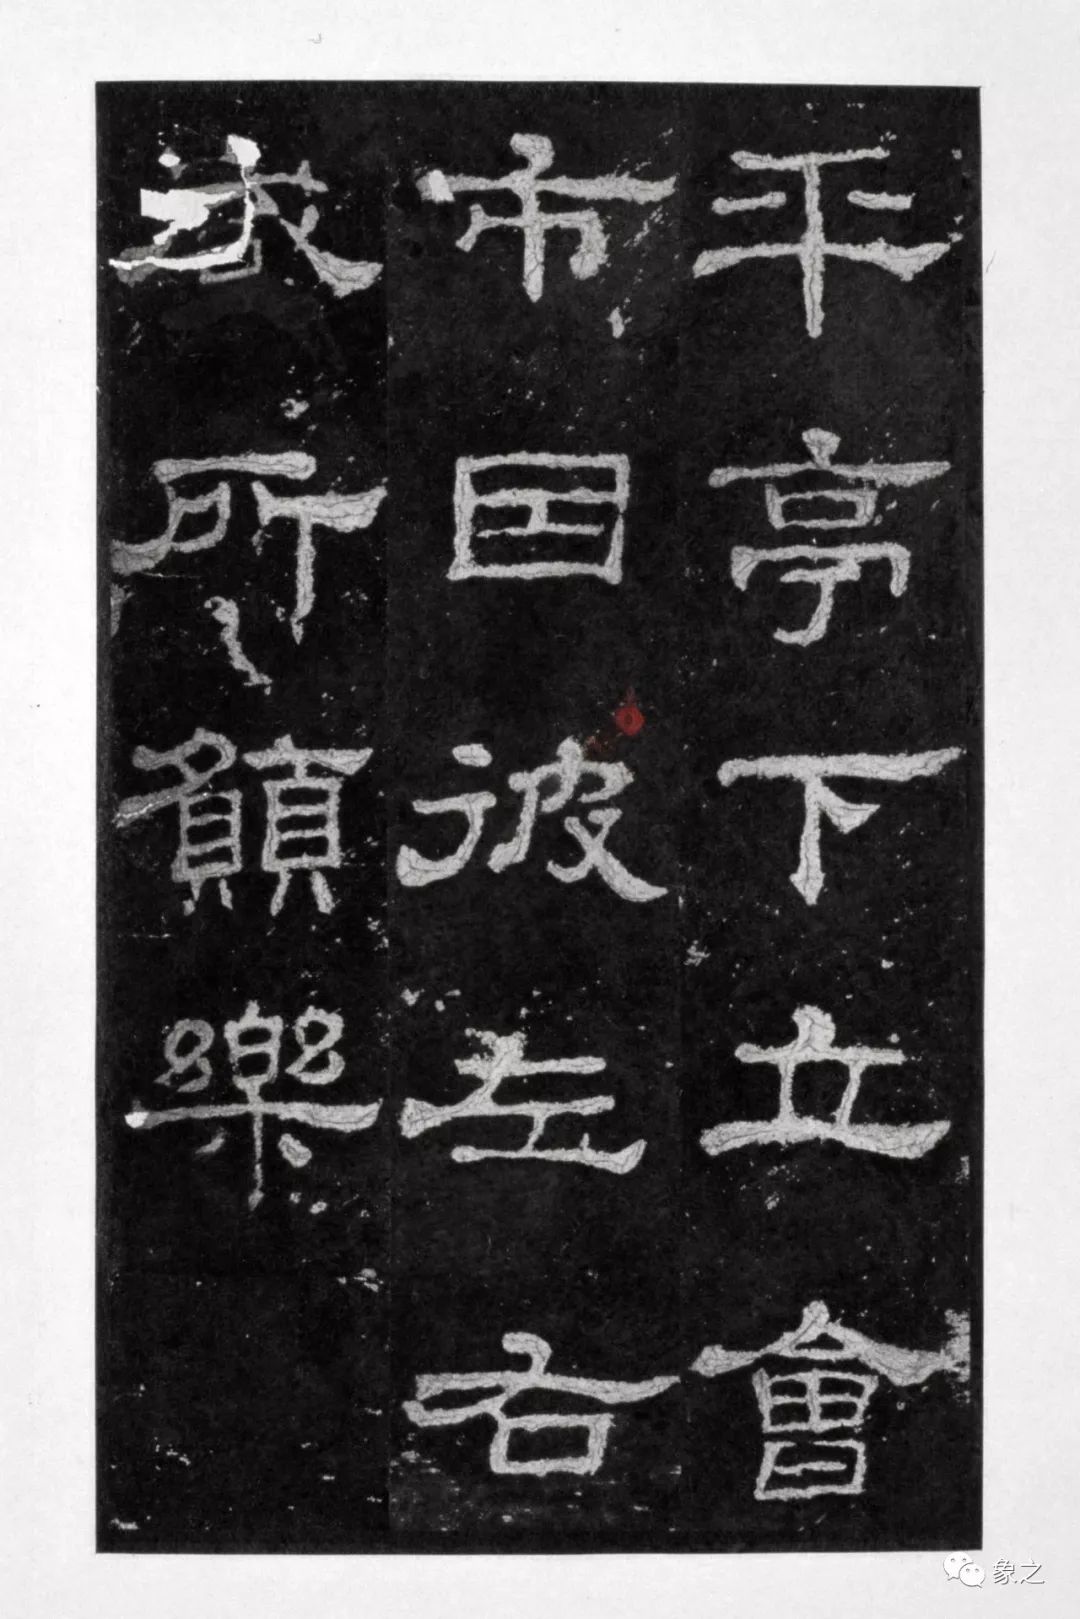 平亭下立會
市因彼左右
咸所願樂
象之